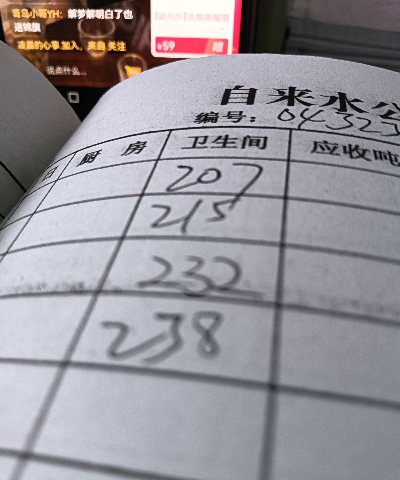 青鸟小哥YH：解梦解明白了也
送锦旗
凌晨的心事 加入，来自 关注
说点什么...
¥59
自来水公
编号：04323
厨房 卫生间 应收吨
207
215
232
238